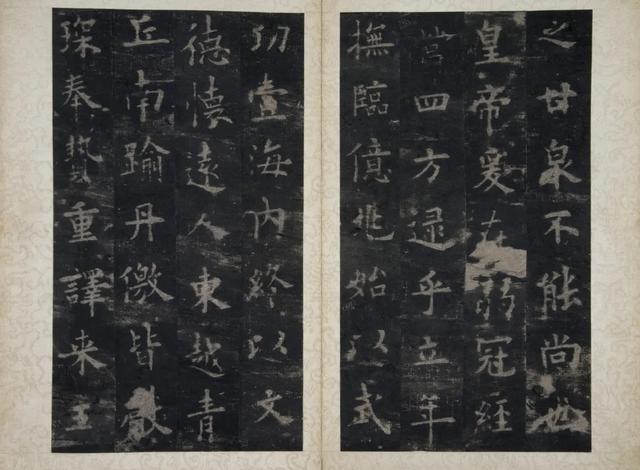 之甘泉不能尚也
皇帝爰在弱冠經
營四方逮乎立年
撫臨億兆始以武
功壹海內終以文
德懷遠人東越青
丘南踰丹徼皆獻
琛奉贄重譯来王